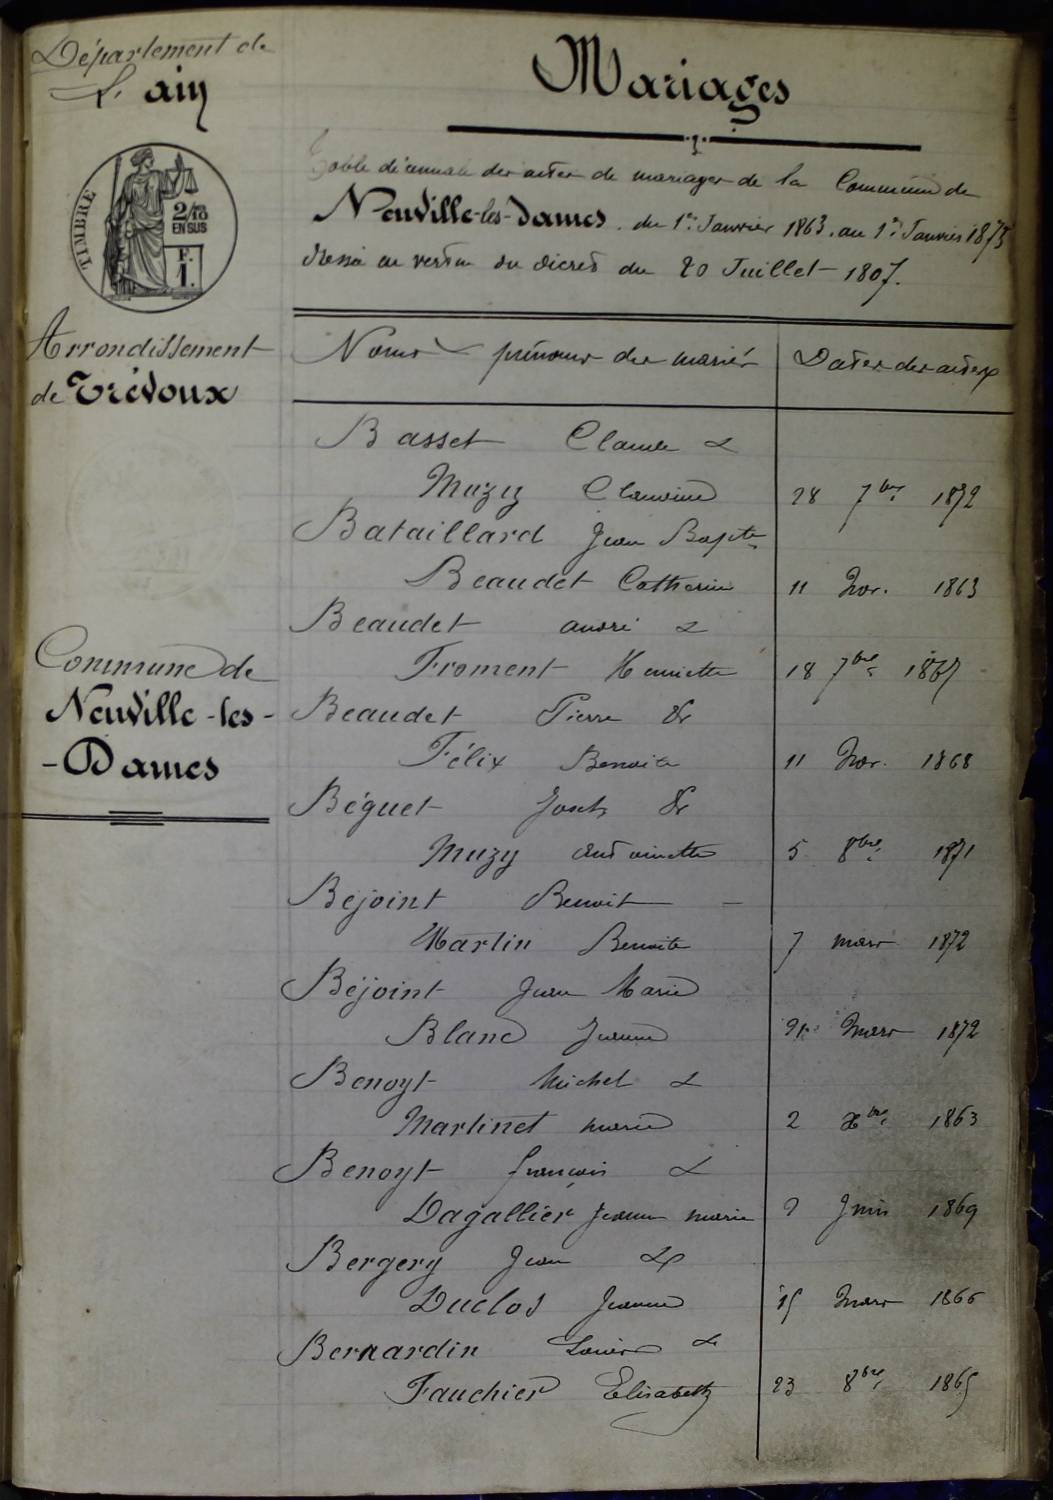 Département de
L'ain
TIMBRE
2/10
EN SUS
F.
1.
Arrondissement
de Trévoux
Commune de
Neuville-les-
-Dames
Mariages
Table décennale des actes de mariages de la Commune de
Neuville-les-Dames. du 1er Janvier 1863. au 1er Janvier 1873
dressé en vertu du décret du 20 Juillet 1807.
Noms & prénoms des mariés Dates des actes
Basset Claude &
Muzy Claudine 28 7bre 1872
Bataillard Jean Bapte
Beaudet Catherine 11 Nov. 1863
Beaudet andré &
Froment Henriette 18 7bre 1867
Beaudet Pierre &
Félix Benoite 11 Nov. 1868
Béguet Joseph &
Muzy Antoinette 5 8bre 1871
Béjoint Benoit —
Martin Benoite 7 mars 1872
Béjoint Jean Marie
Blanc Jeanne 21 Mars 1872
Benoyt Michel &
Martinet marie 2 xbre 1863
Benoyt françois &
Dagallier Jeanne marie 9 Juin 1869
Bergery Jean &
Duclos Jeanne 15 Mars 1866
Bernardin Louis &
Fauchier Elisabeth 23 8bre 1865